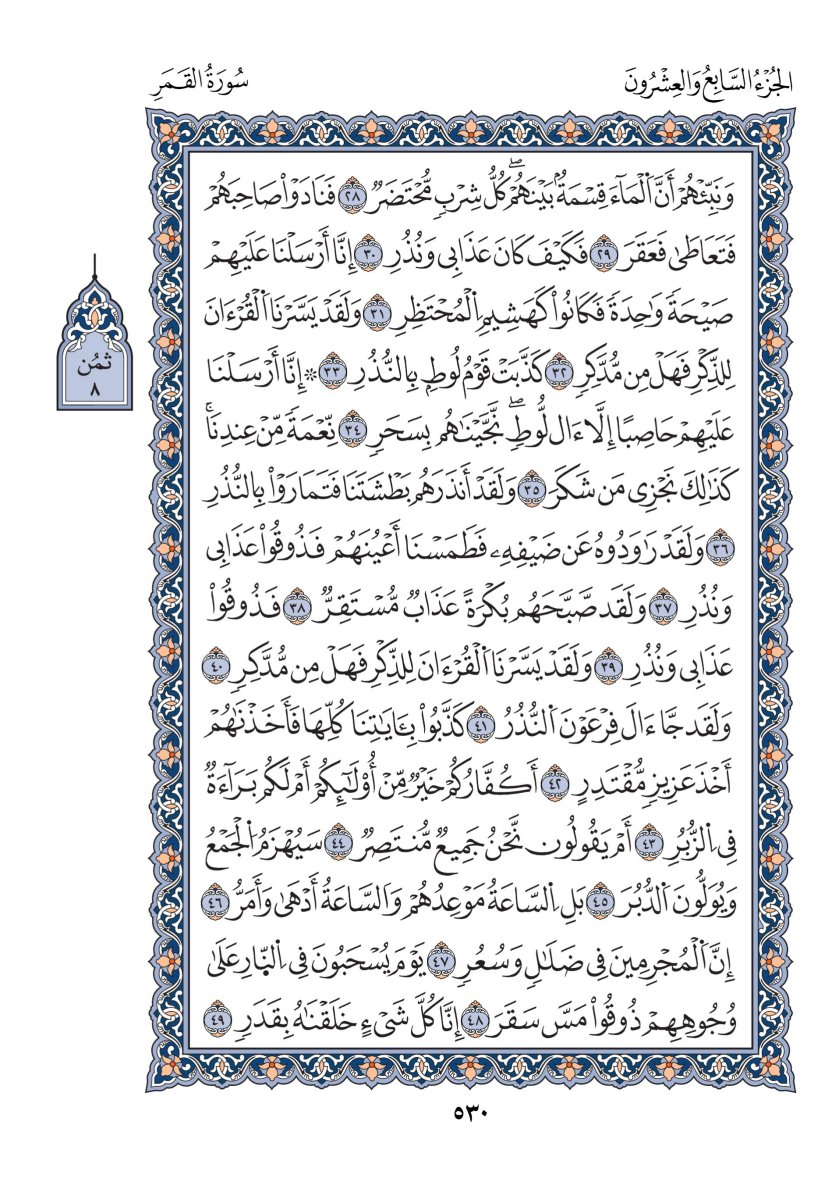 الجُزْءُ السَّابِعُ وَالعِشْرُونَ
سُورَةُ القَمَرِ
وَنَبِّئْهُمْ أَنَّ اَ۬لْمَآءَ قِسْمَةُۢ بَيْنَهُمْۖ كُلُّ شِرْبٖ مُّحْتَضَرٞ ٢٨ فَنَادَوْاْ صَاحِبَهُمْ
فَتَعَاطَىٰ فَعَقَرَ ٢٩ فَكَيْفَ كَانَ عَذَابِى وَنُذُرِ ٣٠ إِنَّا أَرْسَلْنَا عَلَيْهِمْ
صَيْحَةٗ وَٰحِدَةٗ فَكَانُواْ كَهَشِيمِ اِ۬لْمُحْتَظِرِ ٣١ وَلَقَدْ يَسَّرْنَا اَ۬لْقُرْءَانَ
لِلذِّكْرِ فَهَلْ مِن مُّدَّكِرٖ ٣٢ كَذَّبَتْ قَوْمُ لُوطِۢ بِالنُّذُرِ ٣٣ ۞ إِنَّا أَرْسَلْنَا
عَلَيْهِمْ حَاصِبًا إِلَّا ءَالَ لُّوطٖۖ نَّجَّيْنَٰهُم بِسَحَرٖ ٣٤ نِّعْمَةٗ مِّنْ عِندِنَاۚ
كَذَٰلِكَ نَجْزِى مَن شَكَرَ ٣٥ وَلَقَدْ أَنذَرَهُم بَطْشَتَنَا فَتَمَارَوْاْ بِالنُّذُرِ
٣٦ وَلَقَدْ رَٰوَدُوهُ عَن ضَيْفِهِۦ فَطَمَسْنَا أَعْيُنَهُمْ فَذُوقُواْ عَذَابِى
وَنُذُرِ ٣٧ وَلَقَد صَّبَّحَهُم بُكْرَةً عَذَابٞ مُّسْتَقِرّٞ ٣٨ فَذُوقُواْ
عَذَابِى وَنُذُرِ ٣٩ وَلَقَدْ يَسَّرْنَا اَ۬لْقُرْءَانَ لِلذِّكْرِ فَهَلْ مِن مُّدَّكِرٖ ٤٠
وَلَقَد جَّا ءَالَ فِرْعَوْنَ اَ۬لنُّذُرُ ٤١ كَذَّبُواْ بِـَٔايَٰتِنَا كُلِّهَا فَأَخَذْنَٰهُمْ
أَخْذَ عَزِيزٖ مُّقْتَدِرٍ ٤٢ أَكُفَّارُكُمْ خَيْرٞ مِّنْ أُوْلَٰٓئِكُمْ أَمْ لَكُم بَرَآءَةٞ
فِى اِ۬لزُّبُرِ ٤٣ أَمْ يَقُولُون نَّحْنُ جَمِيعٞ مُّنتَصِرٞ ٤٤ سَيُهْزَمُ اُ۬لْجَمْعُ
وَيُوَلُّونَ اَ۬لدُّبُرَ ٤٥ بَلِ اِ۬لسَّاعَةُ مَوْعِدُهُمْ وَالسَّاعَةُ أَدْهَىٰ وَأَمَرُّ ٤٦
إِنَّ اَ۬لْمُجْرِمِينَ فِى ضَلَٰلٖ وَسُعُرٖ ٤٧ يَوْمَ يُسْحَبُونَ فِى اِ۬لنّ۪ارِ عَلَىٰ
وُجُوهِهِمْ ذُوقُواْ مَسَّ سَقَرَ ٤٨ إِنَّا كُلَّ شَىْءٍ خَلَقْنَٰهُ بِقَدَرٖ ٤٩
ثُمُن
٨
٥٣٠